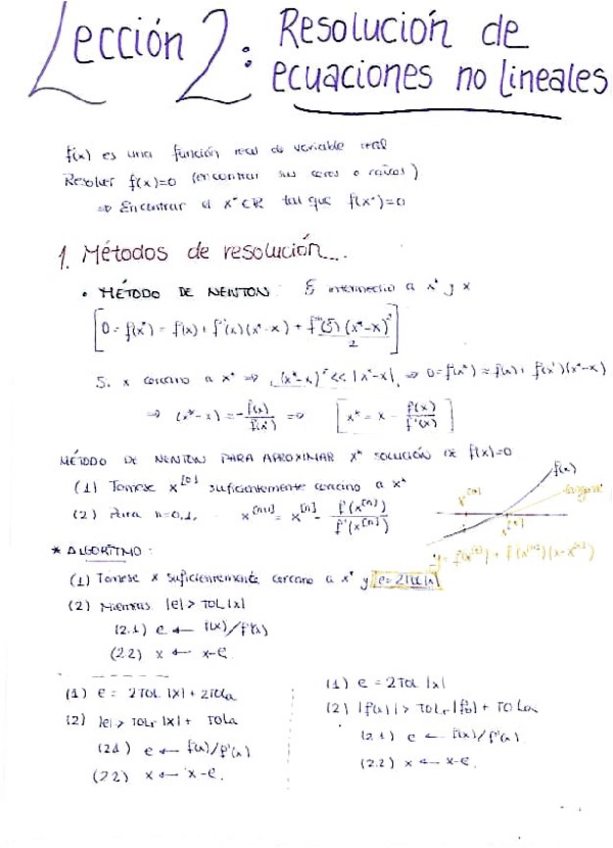 Lección 2: Resolución de
ecuaciones no lineales
f(x) es una función real de variable real
Resolver f(x)=0 (encontrar sus ceros o raíces)
⇒ Encontrar el x* ∈ R tal que f(x*)=0
1. Métodos de resolución...
• MÉTODO DE NEWTON: ξ intermedio a x* y x
[0 = f(x*) = f(x) + f'(x)(x*-x) + f''(ξ)(x*-x)²/2]
Si x cercano a x* ⇒ (x*-x)² << |x*-x| ⇒ 0=f(x*) ≈ f(x) + f'(x)(x*-x)
⇒ (x*-x) ≈ -f(x)/f'(x) ⇒ [x* ≈ x - f(x)/f'(x)]
MÉTODO DE NEWTON PARA APROXIMAR x* SOLUCIÓN DE f(x)=0
(1) Tómese x^[0] suficientemente cercano a x*
(2) Para n=0,1, x^[n+1] = x^[n] - f(x^[n])/f'(x^[n])
f(x)
x^[n]
y = f(x^[n]) + f'(x^[n])(x-x^[n])
* ALGORITMO:
(1) Tómese x suficientemente cercano a x* y e=2TOL|x|
(2) Mientras |e| > TOL|x|
(2.1) e ← f(x)/f'(x)
(2.2) x ← x-e
(1) e = 2TOLr|x| + 2TOLa
(2) |e| > TOLr|x| + TOLa
(2.1) e ← f(x)/f'(x)
(2.2) x ← x-e.
(1) e = 2TOL|x|
(2) |f(x)| > TOLr|f0| + TOLa
(2.1) e ← f(x)/f'(x)
(2.2) x ← x-e.